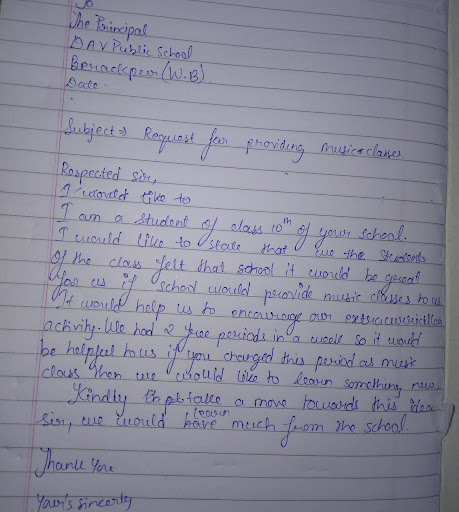 To
The Principal
DAV Public School
Berackpur (W.B)
Date.
Subject → Request for providing music classes
Respected sir,
I would like to
I am a student of class 10th of your school.
I would like to state that we the students
of the class felt that school it would be great
for us if school would provide music classes to us
It would help us to encourage our extracurricular
activity. We had 2 free periods in a week so it would
be helpful to us if you changed this period as music
class then we would like to learn something new.
Kindly take a move towards this idea
sir, we would learn have much from the school.
Thank You
Your's sincerly